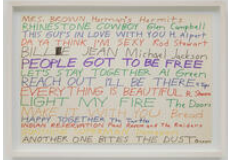 MRS. BROWN Herman's Hermits
RHINESTONE COWBOY Glen Campbell
THIS GUY'S IN LOVE WITH YOU H. Alpert
DA YA THINK I'M SEXY Rod Stewart
BILLIE JEAN Michael Jackson
PEOPLE GOT TO BE FREE
LET'S STAY TOGETHER Al Green
REACH OUT I'LL BE THERE
EVERYTHING IS BEAUTIFUL R. Stevens
LIGHT MY FIRE The Doors
MAKE IT WITH YOU Bread
HAPPY TOGETHER The Turtles
INDIAN RESERVATION Paul Revere and The Raiders
ANOTHER ONE BITES THE DUST